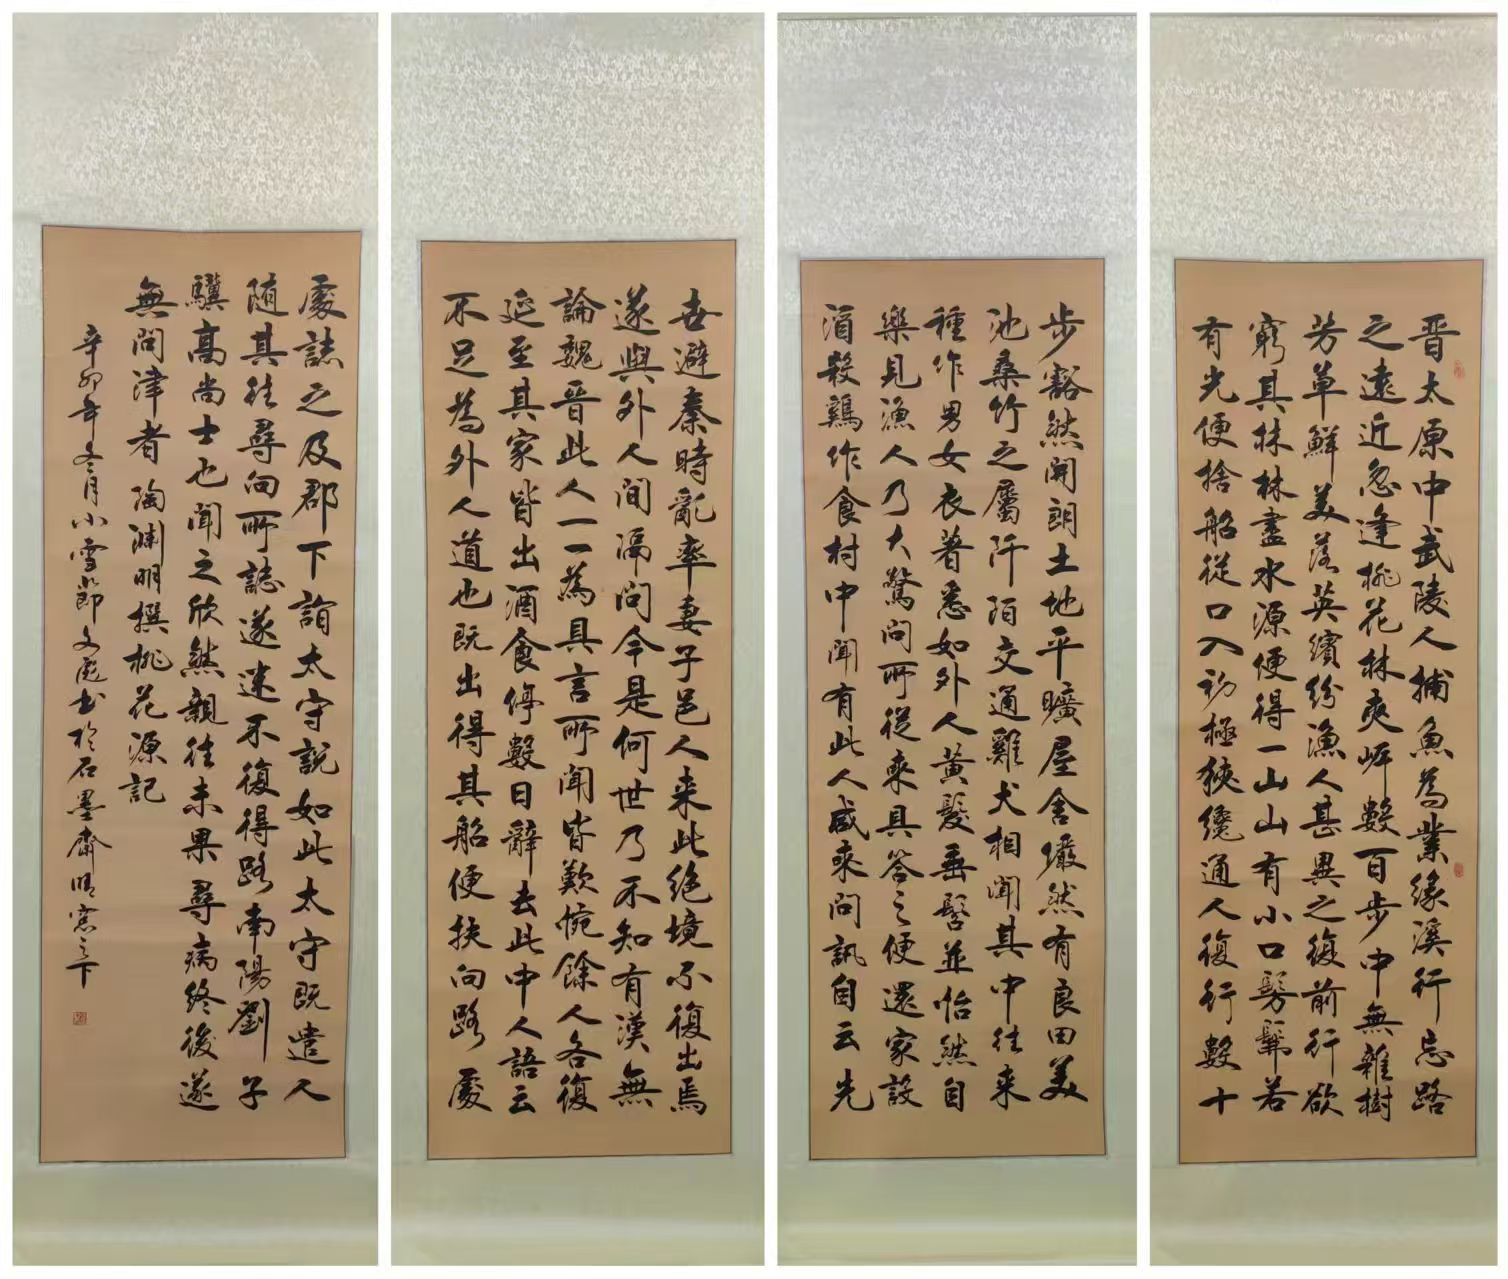 晋太原中武陵人捕魚為業緣溪行忘路
之遠近忽逢桃花林夾岸數百步中無雜樹
芳草鮮美落英繽紛漁人甚異之復前行欲
窮其林林盡水源便得一山山有小口髣髴若
有光便捨船從口入初極狹纔通人復行數十
步豁然開朗土地平曠屋舍儼然有良田美
池桑竹之屬阡陌交通雞犬相聞其中往来
種作男女衣著悉如外人黃髮垂髫並怡然自
樂見漁人乃大驚問所從來具答之便還家設
酒殺鷄作食村中聞有此人咸來問訊自云先
世避秦時亂率妻子邑人来此絕境不復出焉
遂與外人間隔問今是何世乃不知有漢無
論魏晋此人一一為具言所聞皆歎惋餘人各復
延至其家皆出酒食停數日辭去此中人語云
不足為外人道也既出得其船便扶向路處
處誌之及郡下詣太守說如此太守既遣人
随其往尋向所誌遂迷不復得路南陽劉子
驥高尚士也聞之欣然親往未果尋病終後遂
無問津者陶淵明撰桃花源記
辛卯年冬月小雪節文彪书於石墨齋明窓之下